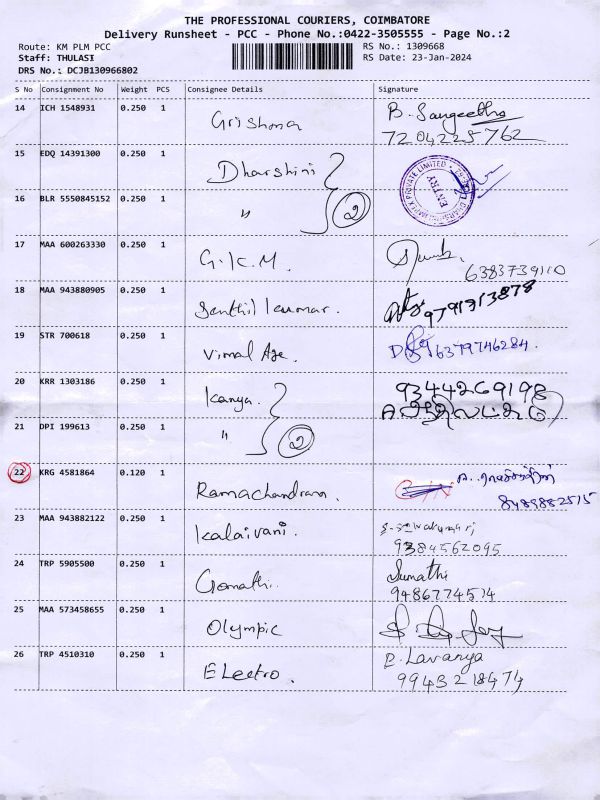 THE PROFESSIONAL COURIERS, COIMBATORE
Delivery Runsheet - PCC - Phone No.:0422-3505555 - Page No.:2
Route: KM PLM PCC RS No.: 1309668
Staff: THULASI RS Date: 23-Jan-2024
DRS No.: DCJB130966802
S No Consignment No Weight PCS Consignee Details Signature
14 ICH 1548931 0.250 1 Grishma B. Sangeetha
7204225762
15 EDQ 14391300 0.250 1 Dharshini
PRIVATE LIMITED ENTRY
16 BLR 5550845152 0.250 1 " 2
17 MAA 600263330 0.250 1 G.K.M.
6383739110
18 MAA 943880905 0.250 1 Senthil kumar. 9791313878
19 STR 700618 0.250 1 Vimal Age. 6379746284.
20 KRR 1303186 0.250 1 Kanya. 9344269198
21 DPI 199613 0.250 1 " 2
22 KRG 4581864 0.120 1 Ramachandran.
8489882515
23 MAA 943882122 0.250 1 Kalaivani.
9384562095
24 TRP 5905500 0.250 1 Gomathi. Sumathi
9486774514
25 MAA 573458655 0.250 1 Olympic
26 TRP 4510310 0.250 1 ELectro. P. Lavanya
9943218474